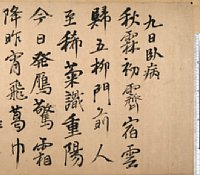 九日臥病
秋霖初霽宿雲
歸五柳門前人
至稀菊識重陽
今日發鴈驚霜
降昨宵飛葛巾